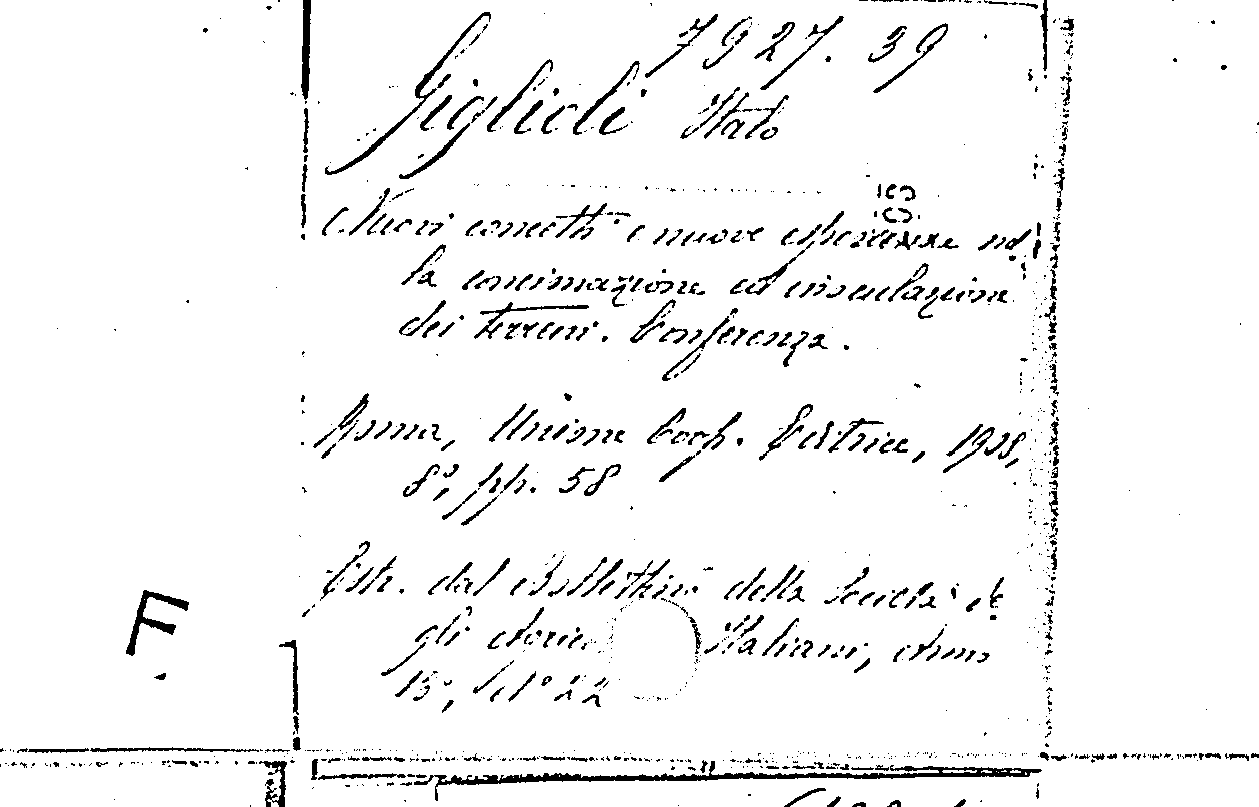 7927. 39
Giglioli Italo
Nuovi concetti e nuove esperienze nel
la concimazione ed inoculazione
dei terreni. Conferenza.
Roma, Unione Coop. Editrice, 1908,
8°, pp. 58
Estr. dal Bollettino della Società de
gli Agric Italiani, Anno
13°, N° 22
F.